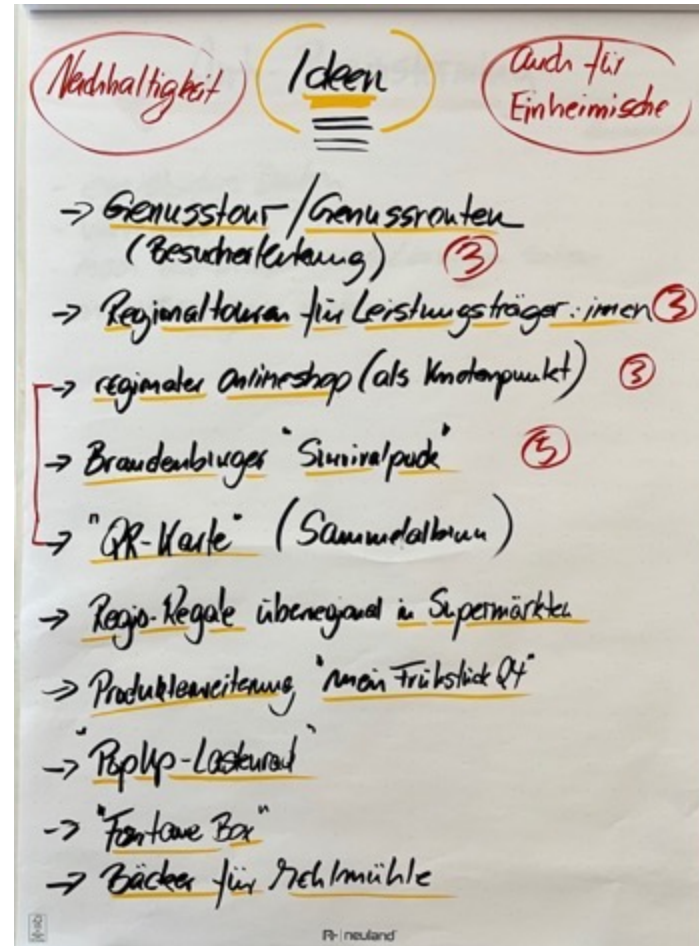 Nachhaltigkeit
Ideen
Auch für
Einheimische
-> Genusstour/Genussrouten
(Besucherlenkung) ③
-> Regionaltouren für Leistungsträger:innen ③
-> regionaler Onlineshop (als Knotenpunkt) ③
-> Brandenburger "Survivalpack" ⑤
-> "QR-Karte" (Sammelalbum)
-> Regio-Regale überregional in Supermärkten
-> Produkterweiterung "mein Frühstück Q4"
-> "PopUp-Lastenrad"
-> "Fontane Box"
-> Bäcker für Mehlmühle
neuland